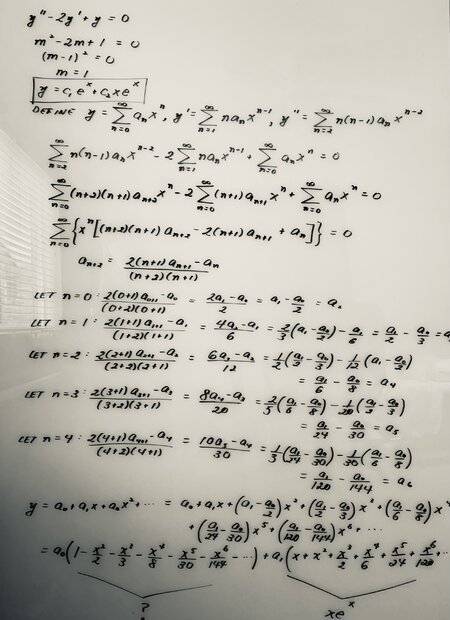 y'' - 2y' + y = 0
m² - 2m + 1 = 0
(m-1)² = 0
m = 1
y = c₁eˣ + c₂xeˣ
DEFINE y = ∑_{n=0}^{∞} aₙxⁿ, y' = ∑_{n=1}^{∞} naₙxⁿ⁻¹, y'' = ∑_{n=2}^{∞} n(n-1)aₙxⁿ⁻²
∑_{n=2}^{∞} n(n-1)aₙxⁿ⁻² - 2∑_{n=1}^{∞} naₙxⁿ⁻¹ + ∑_{n=0}^{∞} aₙxⁿ = 0
∑_{n=0}^{∞} (n+2)(n+1)aₙ₊₂xⁿ - 2∑_{n=0}^{∞} (n+1)aₙ₊₁xⁿ + ∑_{n=0}^{∞} aₙxⁿ = 0
∑_{n=0}^{∞} {xⁿ[(n+2)(n+1)aₙ₊₂ - 2(n+1)aₙ₊₁ + aₙ]} = 0
aₙ₊₂ = (2(n+1)aₙ₊₁ - aₙ)/((n+2)(n+1))
LET n=0: (2(0+1)a₀₊₁ - a₀)/((0+2)(0+1)) = (2a₁ - a₀)/2 = a₁ - a₀/2 = a₂
LET n=1: (2(1+1)a₁₊₁ - a₁)/((1+2)(1+1)) = (4a₂ - a₁)/6 = 2/3(a₁ - a₀/2) - a₁/6 = a₁/2 - a₀/3 = a
LET n=2: (2(2+1)a₂₊₁ - a₂)/((2+2)(2+1)) = (6a₃ - a₂)/12 = 1/2(a₁/2 - a₀/3) - 1/12(a₁ - a₀/2)
= a₁/6 - a₀/8 = a₄
LET n=3: (2(3+1)a₃₊₁ - a₃)/((3+2)(3+1)) = (8a₄ - a₃)/20 = 2/5(a₁/6 - a₀/8) - 1/20(a₁/2 - a₀/3)
= a₁/24 - a₀/30 = a₅
LET n=4: (2(4+1)a₄₊₁ - a₄)/((4+2)(4+1)) = (10a₅ - a₄)/30 = 1/3(a₁/24 - a₀/30) - 1/30(a₁/6 - a₀/8)
= a₁/120 - a₀/144 = a₆
y = a₀ + a₁x + a₂x² + ··· = a₀ + a₁x + (a₁ - a₀/2)x² + (a₁/2 - a₀/3)x³ + (a₁/6 - a₀/8)x⁴
+ (a₁/24 - a₀/30)x⁵ + (a₁/120 - a₀/144)x⁶ + ···
= a₀(1 - x²/2 - x³/3 - x⁴/8 - x⁵/30 - x⁶/144 - ···) + a₁(x + x² + x³/2 + x⁴/6 + x⁵/24 + x⁶/120 + ··
? xeˣ